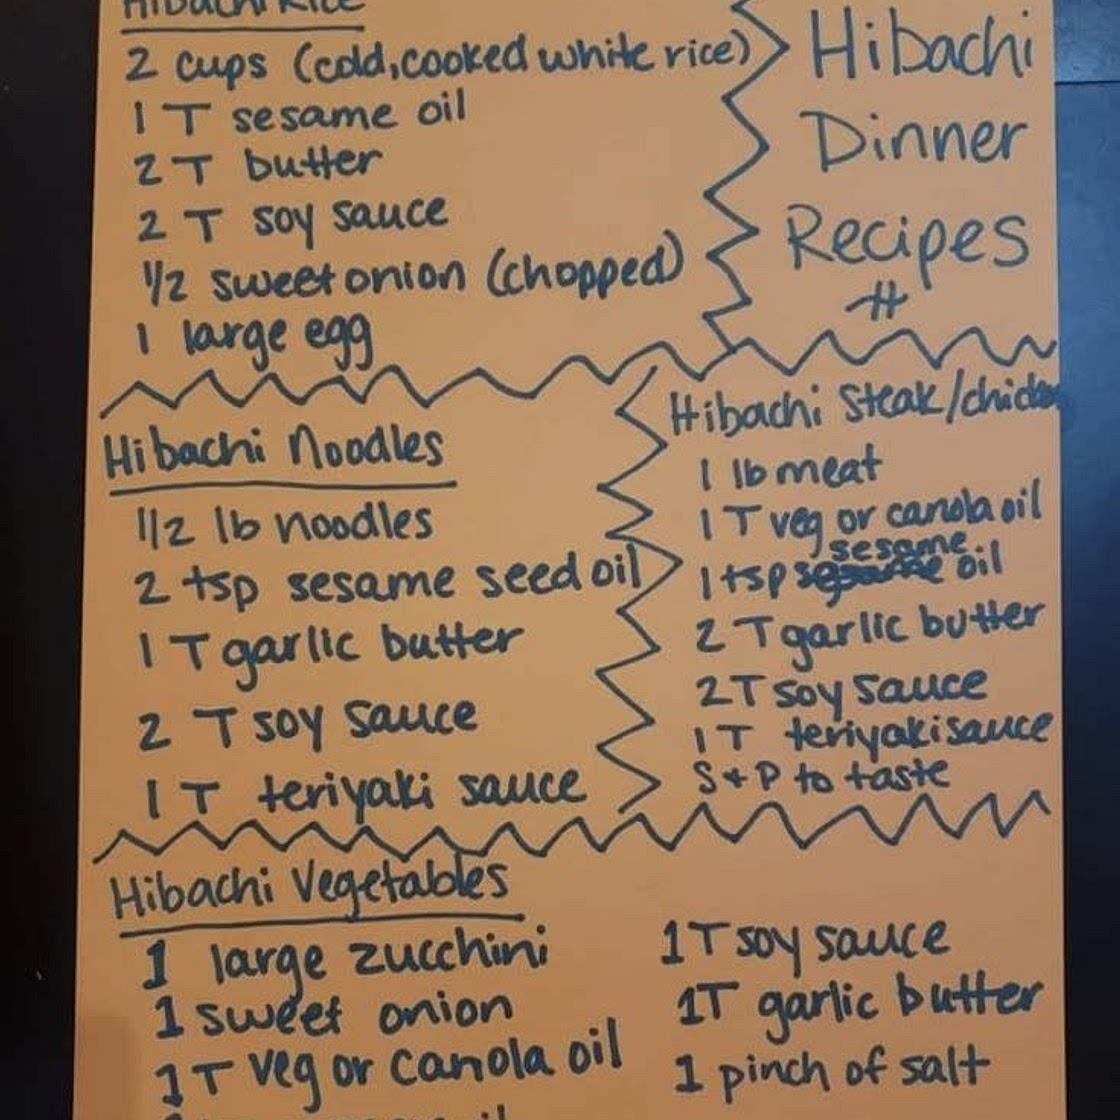 Hibachi Rice
2 cups (cold, cooked white rice)
1 T sesame oil
2 T butter
2 T soy sauce
1/2 sweet onion (chopped)
1 large egg
Hibachi
Dinner
Recipes
#
Hibachi Noodles
1/2 lb noodles
2 tsp sesame seed oil
1 T garlic butter
2 T soy sauce
1 T teriyaki sauce
Hibachi Steak/chicken
1 lb meat
1 T veg or canola oil
1 tsp sesame oil
2 T garlic butter
2 T soy sauce
1 T teriyaki sauce
S + P to taste
Hibachi Vegetables
1 large zucchini
1 sweet onion
1 T veg or canola oil
1 T soy sauce
1T garlic butter
1 pinch of salt